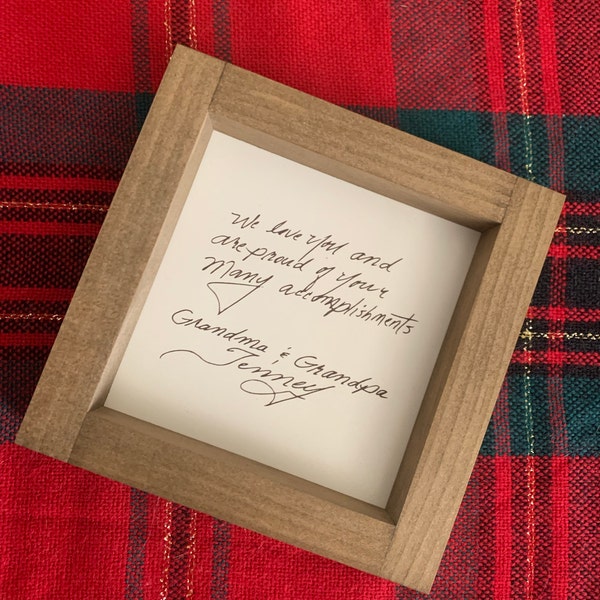 We love you and
are proud of your
Many accomplishments
Grandma & Grandpa
Tenney